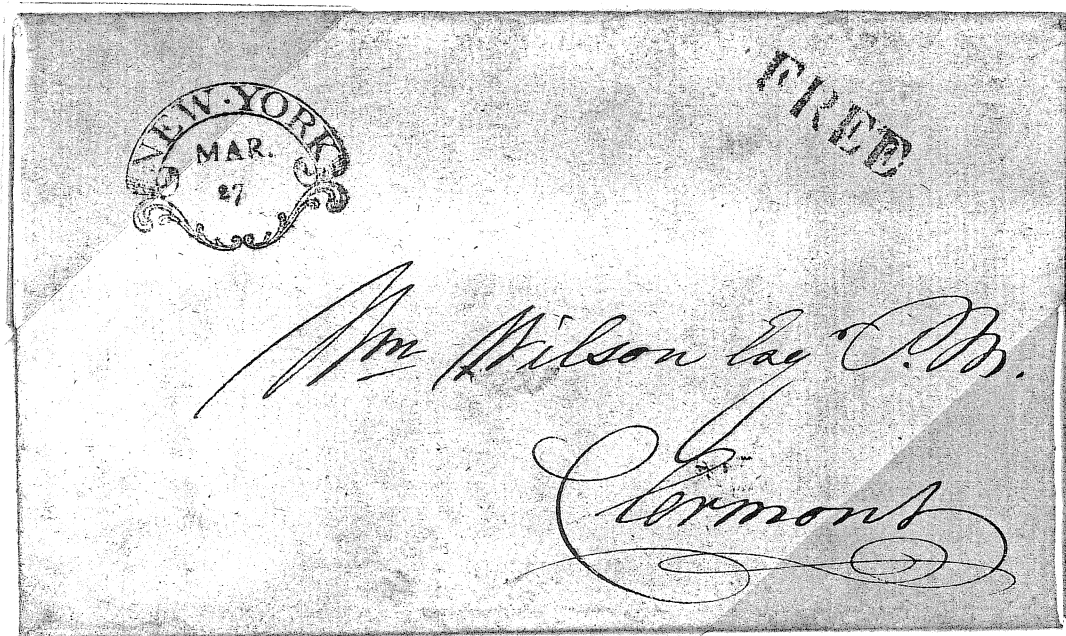 NEW·YORK
MAR.
27
FREE
Wm Wilson Esqr P.M.
Clermont
N.Y.